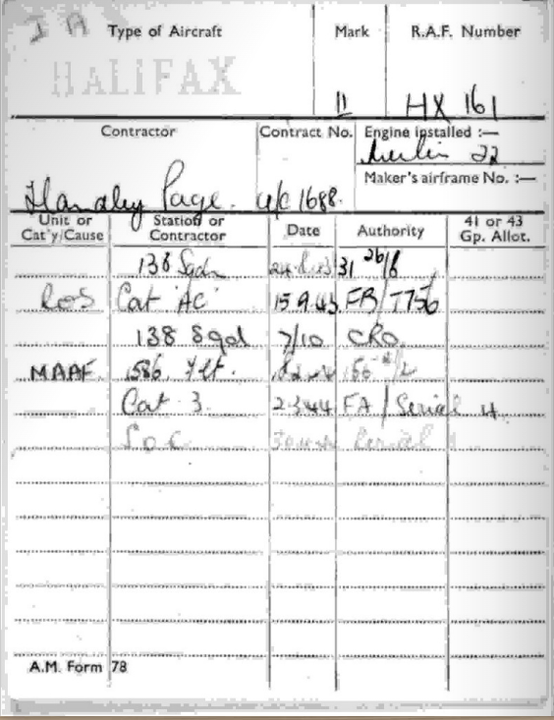 Type of Aircraft Mark R.A.F. Number
HALIFAX
II HX 161
Contractor Contract No. Engine installed :—
Merlin 22
Maker's airframe No. :—
Handley Page. 1688.
Unit or Cat'y/Cause Station or Contractor Date Authority 41 or 43 Gp. Allot.
138 Sqdn 31 26/8
ROS Cat 'AC' 15.9.43. FB/T756
138 Sqd 7/10 CRO.
MAAF. 1586 Flt.
Cat 3. 2.3.44 FA/Serial 4.
S.O.C Serial
A.M. Form 78